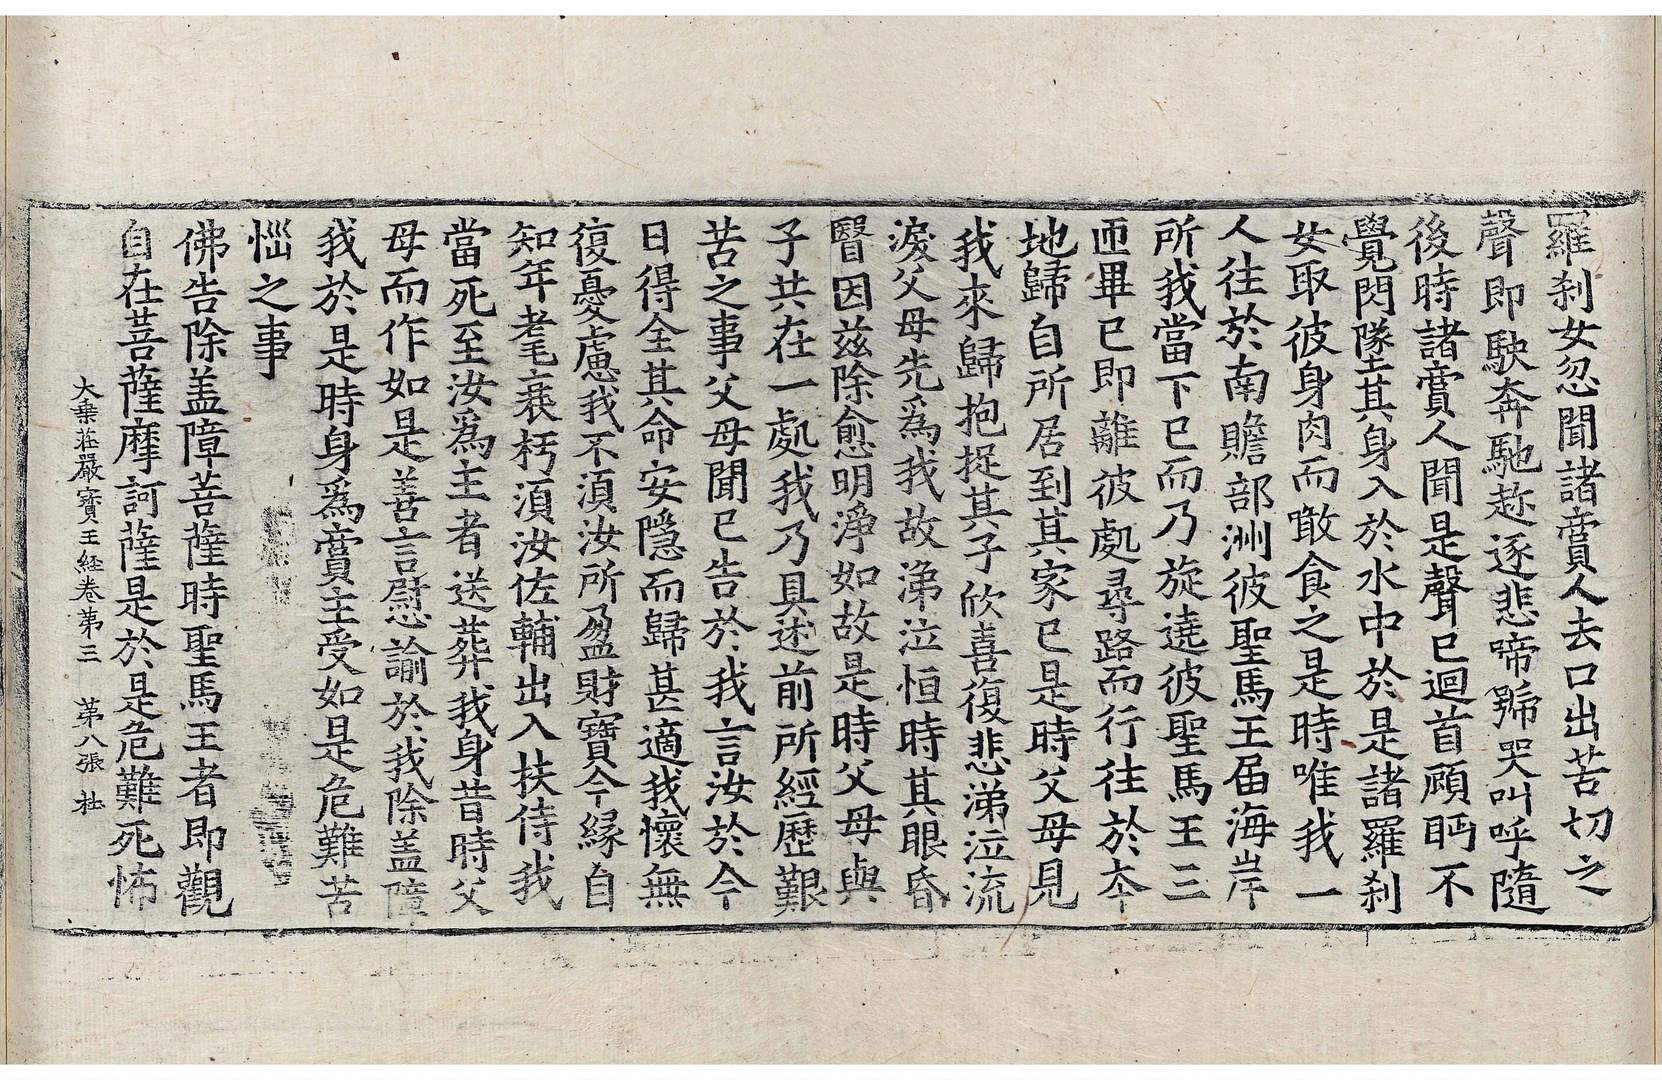 羅刹女忽聞諸賣人去口出苦切之
聲即駛奔馳趂逐悲啼號哭叫呼隨
後時諸賣人聞是聲已迴首顧眄不
覺閃墬其身入於水中於是諸羅刹
女取彼身肉而噉食之是時唯我一
人往於南贍部洲彼聖馬王届海岸
所我當下已而乃旋遶彼聖馬王三
匝畢已即離彼處尋路而行往於夲
地歸自所居到其家已是時父母見
我來歸抱捉其子欣喜復悲涕泣流
淚父母先爲我故涕泣恒時其眼昏
瞖因兹除愈明淨如故是時父母與
子共在一處我乃具述前所經歷艱
苦之事父母聞已告於我言汝於今
日得全其命安隱而歸甚適我懷無
復憂慮我不湏汝所盈財寶今縁自
知年老耄衰朽湏汝佐輔出入扶侍我
當死至汝爲主者送葬我身昔時父
母而作如是善言慰諭於我除盖障
我於是時身爲賣主受如是危難苦
惱之事
佛告除盖障菩薩時聖馬王者即觀
自在菩薩摩訶薩是於是危難死怖
大乗莊嚴寳王経卷第三　第八張　杜